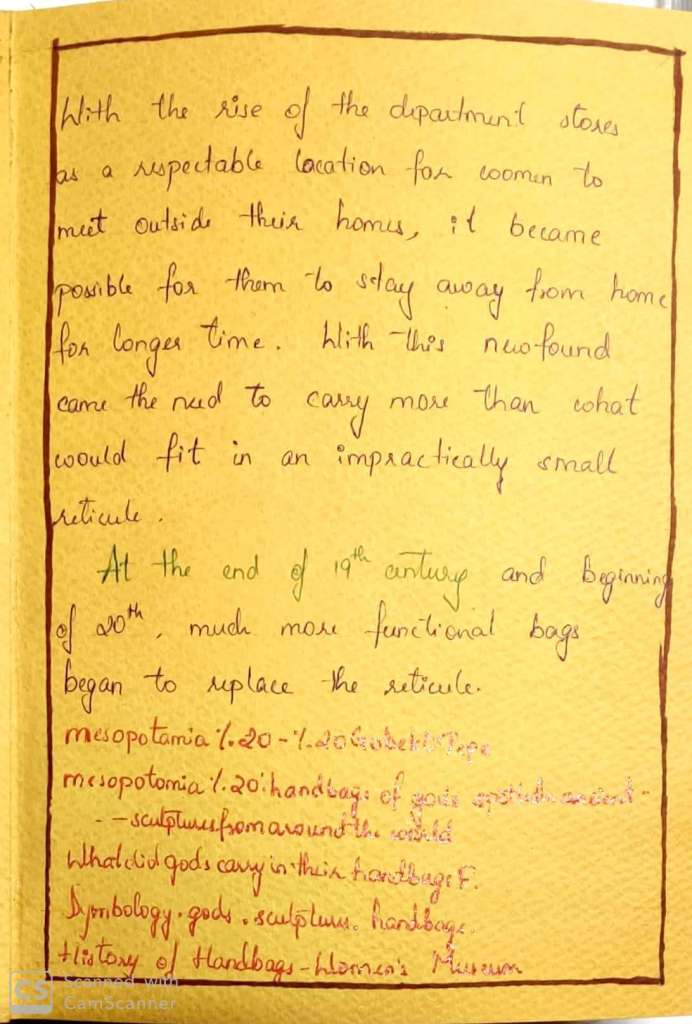 With the rise of the department stores
as a respectable location for women to
meet outside their homes, it became
possible for them to stay away from home
for longer time. With this newfound
came the need to carry more than what
would fit in an impractically small
reticule.
At the end of 19th century and beginning
of 20th, much more functional bags
began to replace the reticule.
mesopotamia %20-%20 Gobekli Tepe
mesopotomia %20: handbags of gods ancient-
--sculptures from around the world
What did gods carry in their handbags
Symbology. gods. sculptures. handbags.
History of Handbags - Women's Museum
CS Scanned with
CamScanner